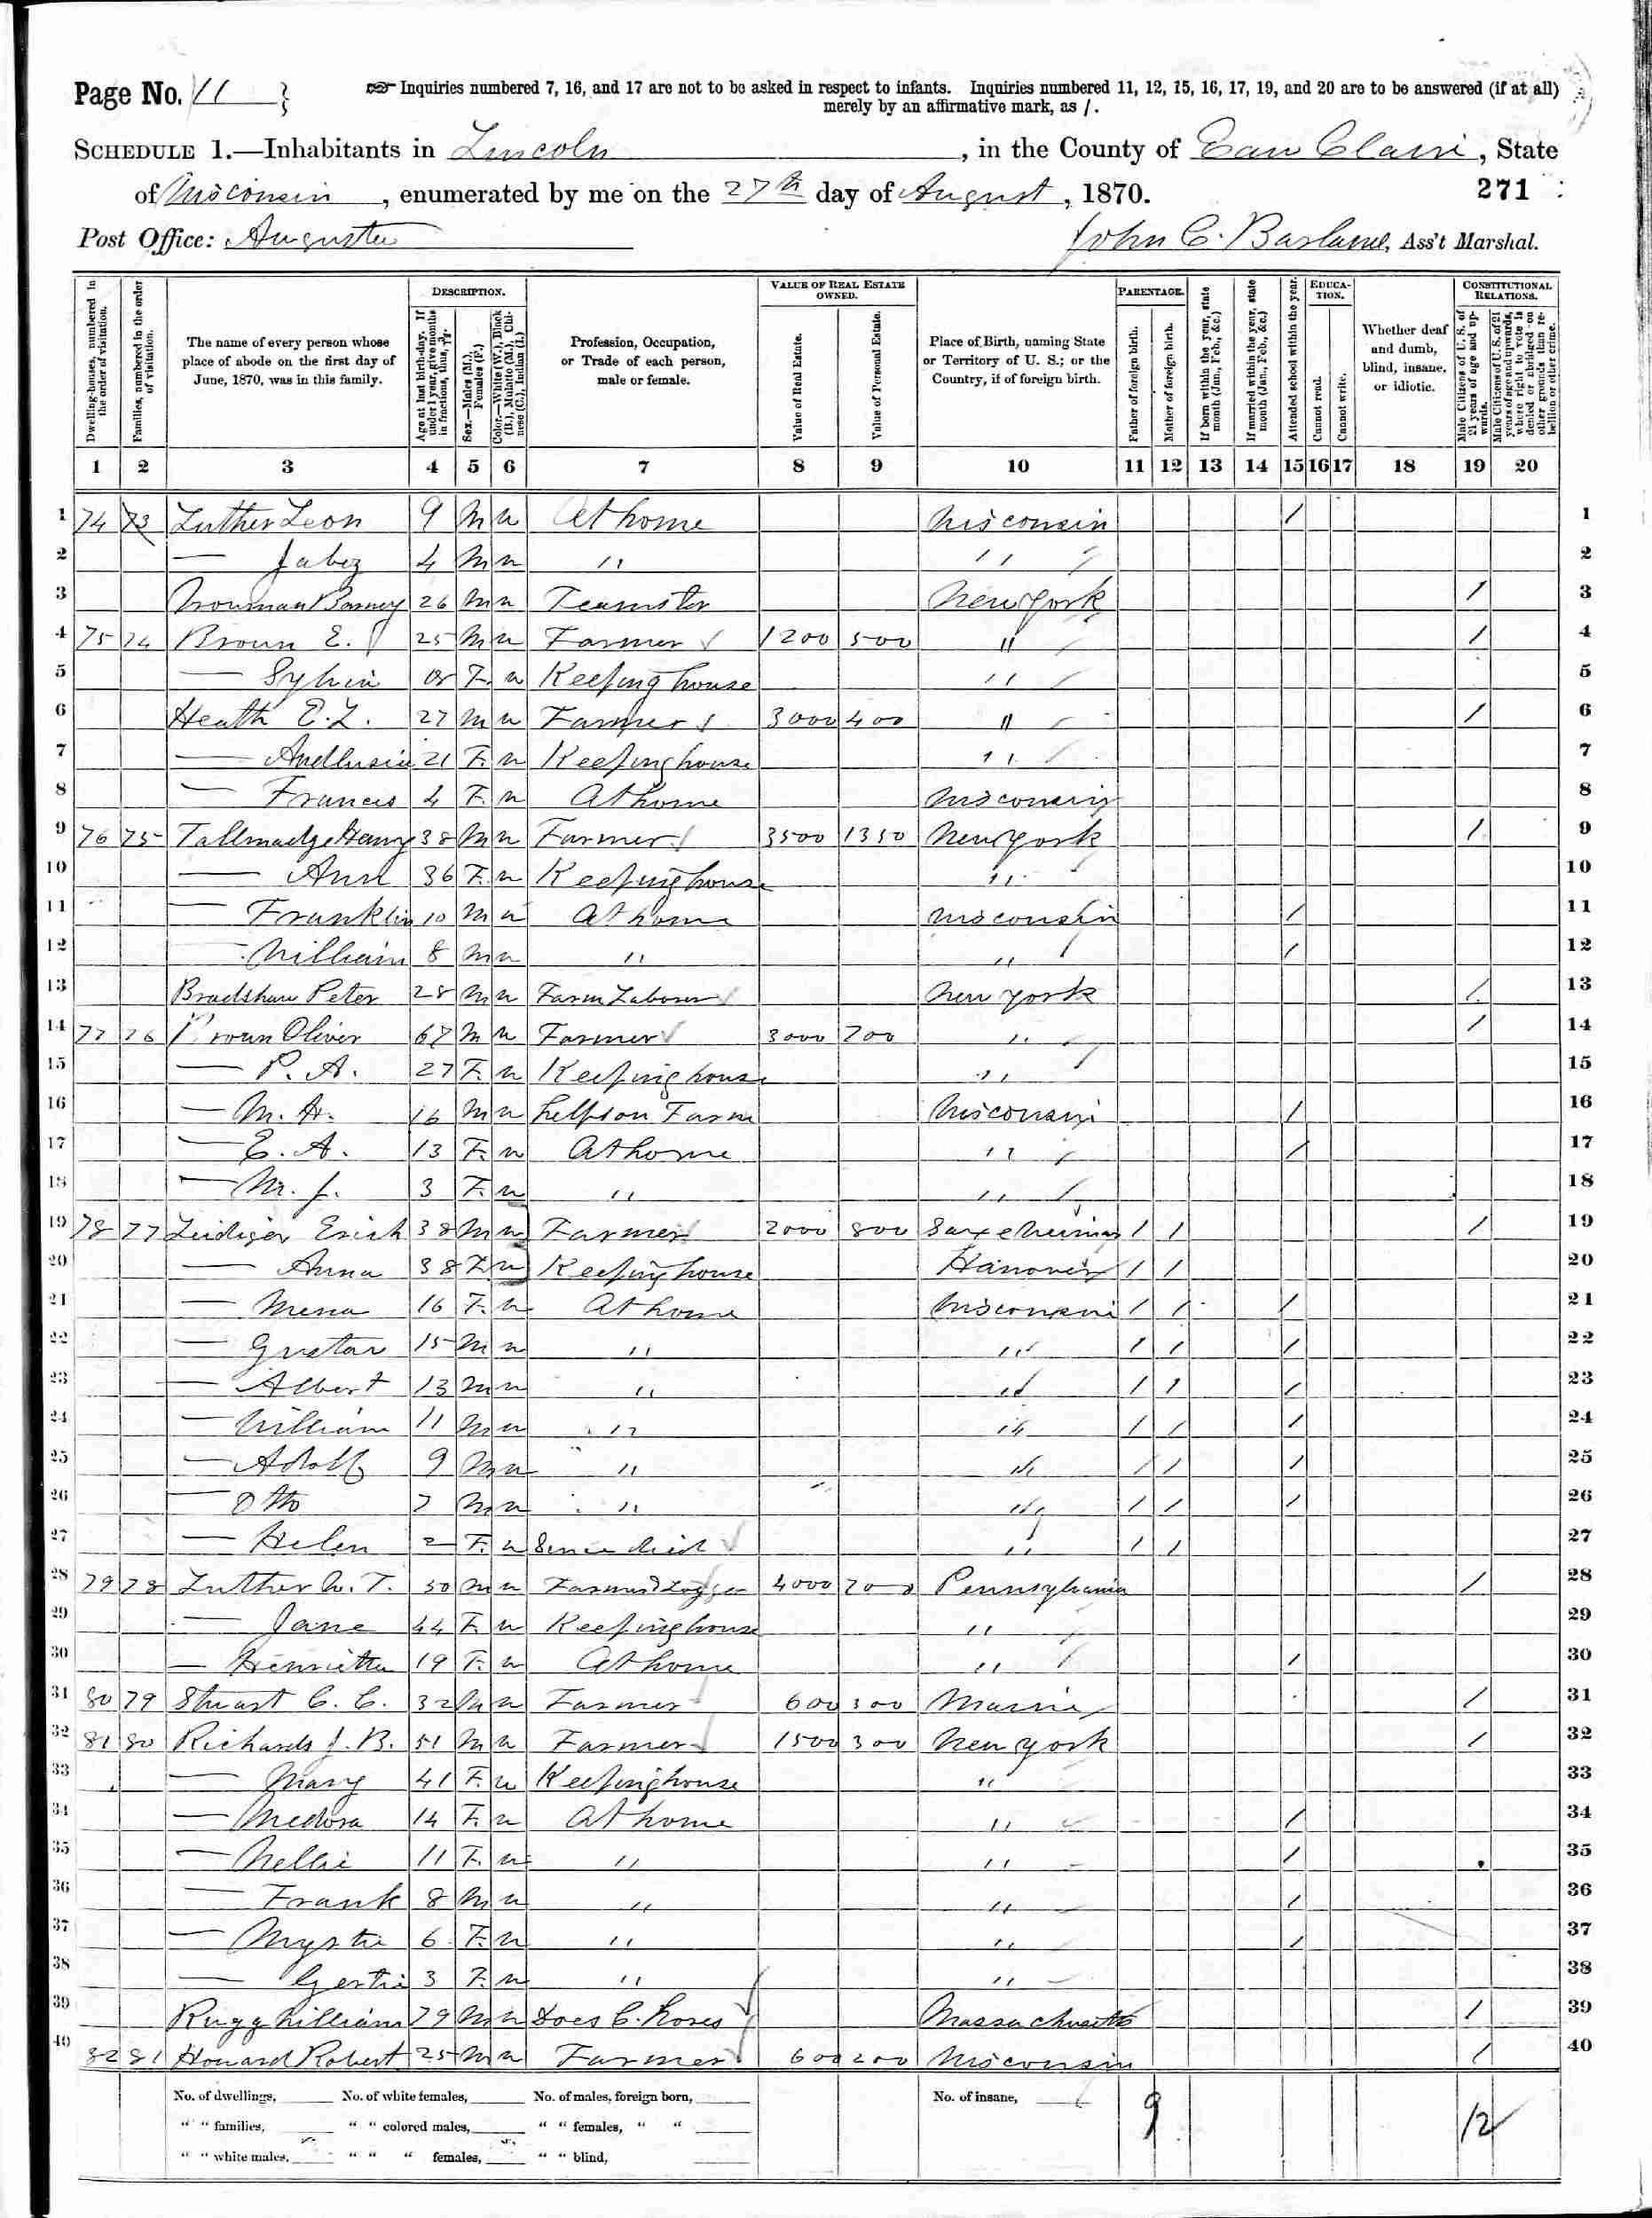 Page No. 11
☞ Inquiries numbered 7, 16, and 17 are not to be asked in respect to infants. Inquiries numbered 11, 12, 15, 16, 17, 19, and 20 are to be answered (if at all)
merely by an affirmative mark, as /.
SCHEDULE 1.—Inhabitants in Lincoln, in the County of Eau Claire, State
of Wisconsin, enumerated by me on the 27th day of August, 1870. 271
Post Office: Augusta John C. Barland, Ass't Marshal.
Dwelling-houses, numbered in the order of visitation.
Families, numbered in the order of visitation.
The name of every person whose place of abode on the first day of June, 1870, was in this family.
DESCRIPTION.
Age at last birth-day. If under 1 year, give months in fractions, thus, 3/12.
Sex.—Males (M.), Females (F.)
Color.—White (W.), Black (B.), Mulatto (M.), Chinese (C.), Indian (I.)
Profession, Occupation, or Trade of each person, male or female.
VALUE OF REAL ESTATE OWNED.
Value of Real Estate.
Value of Personal Estate.
Place of Birth, naming State or Territory of U. S.; or the Country, if of foreign birth.
PARENTAGE.
Father of foreign birth.
Mother of foreign birth.
If born within the year, state month (Jan., Feb., &c.)
If married within the year, state month (Jan., Feb., &c.)
Attended school within the year.
EDUCATION.
Cannot read.
Cannot write.
Whether deaf and dumb, blind, insane, or idiotic.
CONSTITUTIONAL RELATIONS.
Male Citizens of U. S. of 21 years of age and upwards.
Male Citizens of U. S. of 21 years of age and upwards, where right to vote is denied or abridged on other grounds than rebellion or other crime.
1 2 3 4 5 6 7 8 9 10 11 12 13 14 15 16 17 18 19 20
1 74 73 Luther Leon 9 M W At home Wisconsin / 1
2 — Jabez 4 M W " " 2
3 Barney 26 M W Teamster New York / 3
4 75 74 Brown E. 25 M W Farmer 1200 500 " / 4
5 — Sylvia F. W Keeping house " 5
6 Heath E. L. 27 M W Farmer 3000 400 " / 6
7 — 21 F. W Keeping house " 7
8 — Frances 4 F. W At home Wisconsin 8
9 76 75 Tallmadge Henry 38 M W Farmer 3500 1350 New York / 9
10 — Ann 36 F. W Keeping house " 10
11 — Franklin 10 M W At home Wisconsin / 11
12 — William 8 M W " " / 12
13 Bradshaw Peter 28 M W Farm Laborer New York / 13
14 77 76 Brown Oliver 67 M W Farmer 3000 700 " / 14
15 — P. A. 27 F. W Keeping house " 15
16 — M. H. 16 M W helps on Farm Wisconsin / 16
17 — E. A. 13 F. W At home " / 17
18 — M. J. 3 F. W " " 18
19 78 77 Leidiger Erich 38 M W Farmer 2000 800 Saxe Weimar / / / 19
20 — Anna 38 F W Keeping house Hanover / / 20
21 — Mena 16 F. W At home Wisconsin / / / 21
22 — Gustav 15 M W " " / / / 22
23 — Albert 13 M W " " / / / 23
24 — William 11 M W " " / / / 24
25 — Adolf 9 M W " " / / / 25
26 — Otto 7 M W " " / / / 26
27 — Helen 2 F. W Since died " / / 27
28 79 78 Luther W. T. 50 M W Farmer & Logger 4000 700 Pennsylvania / 28
29 — Jane 44 F. W Keeping house " 29
30 — Henrietta 19 F. W At home " / 30
31 80 79 Stuart C. C. 32 M W Farmer 600 300 Maine / 31
32 81 80 Richards J. B. 51 M W Farmer 1500 300 New York / 32
33 — Mary 41 F. W Keeping house " 33
34 — Medora 14 F. W At home " / 34
35 — Nellie 11 F. W " " / 35
36 — Frank 8 M W " " / 36
37 — Myrtie 6 F. W " " / 37
38 — Gertie 3 F. W " " 38
39 Rugg William 79 M W Does C. Massachusetts / 39
40 82 81 Howard Robert 25 M W Farmer 600 200 Wisconsin / 40
No. of dwellings, No. of white females, No. of males, foreign born, No. of insane, 9 12
" " families, " " colored males, " " females, " "
" " white males, " " " females, " " blind,